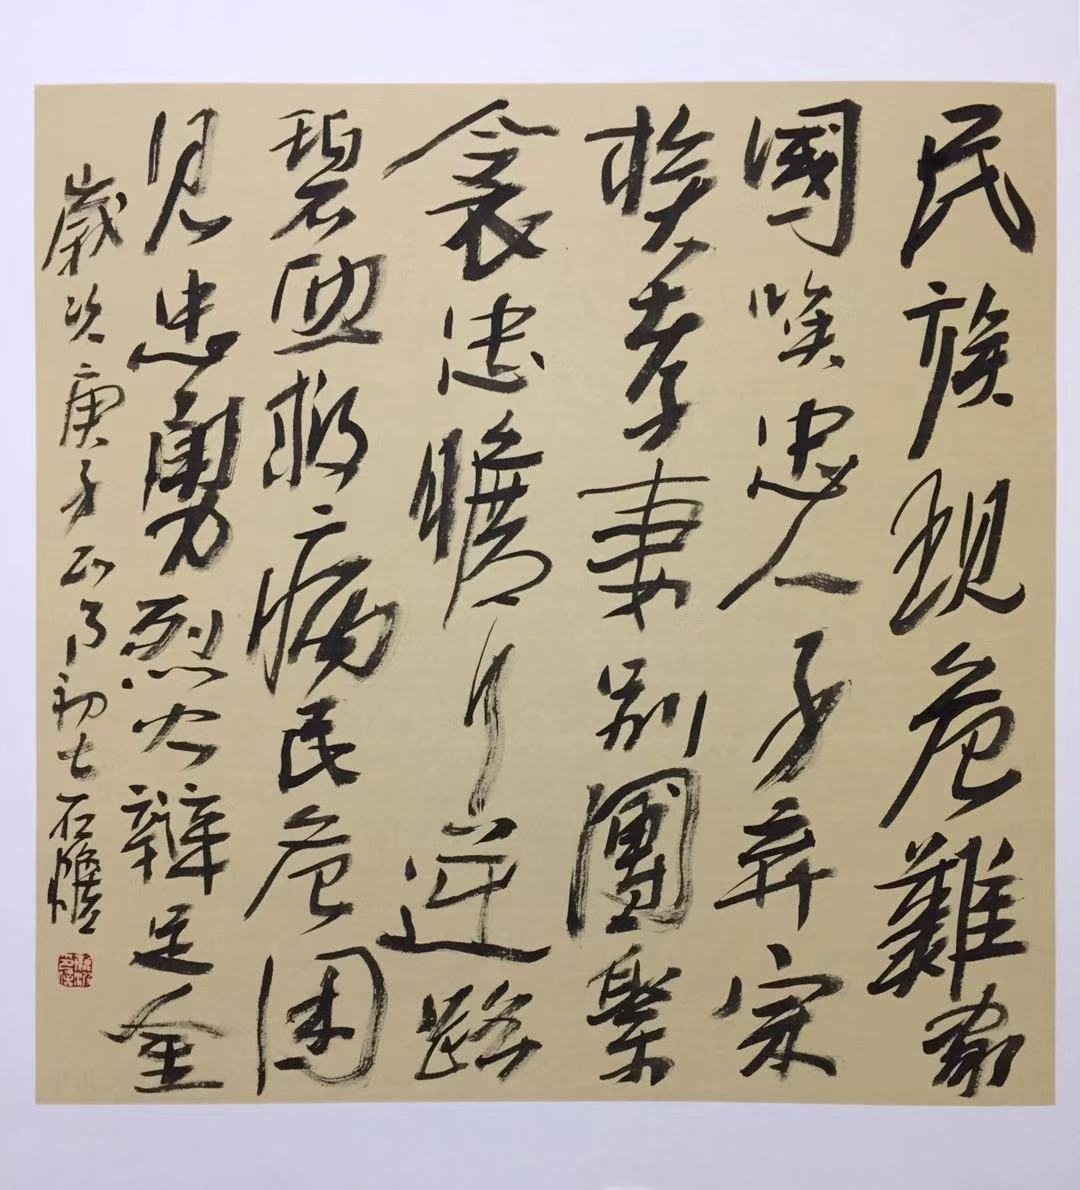 民族現危難家
國喚忠人子弃宗
族孝妻別團聚
衾忠膽行逆路
碧血救病民危困
見忠勇烈火辨足金
歲次庚子正月初七石